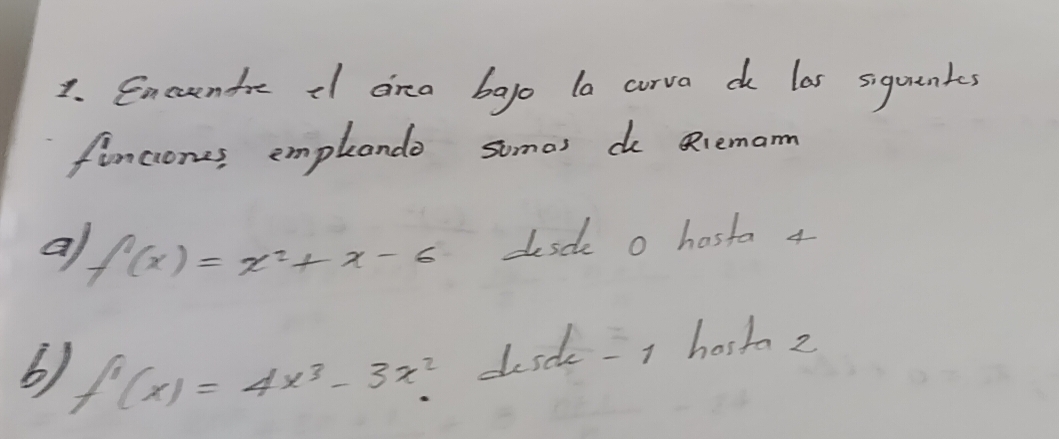 1. Encuentre el área bajo la curva de las siguientes
funciones, empleando sumas de Riemann
a) f(x) = x² + x - 6 desde 0 hasta 4
b) f(x) = 4x³ - 3x². desde -1 hasta 2